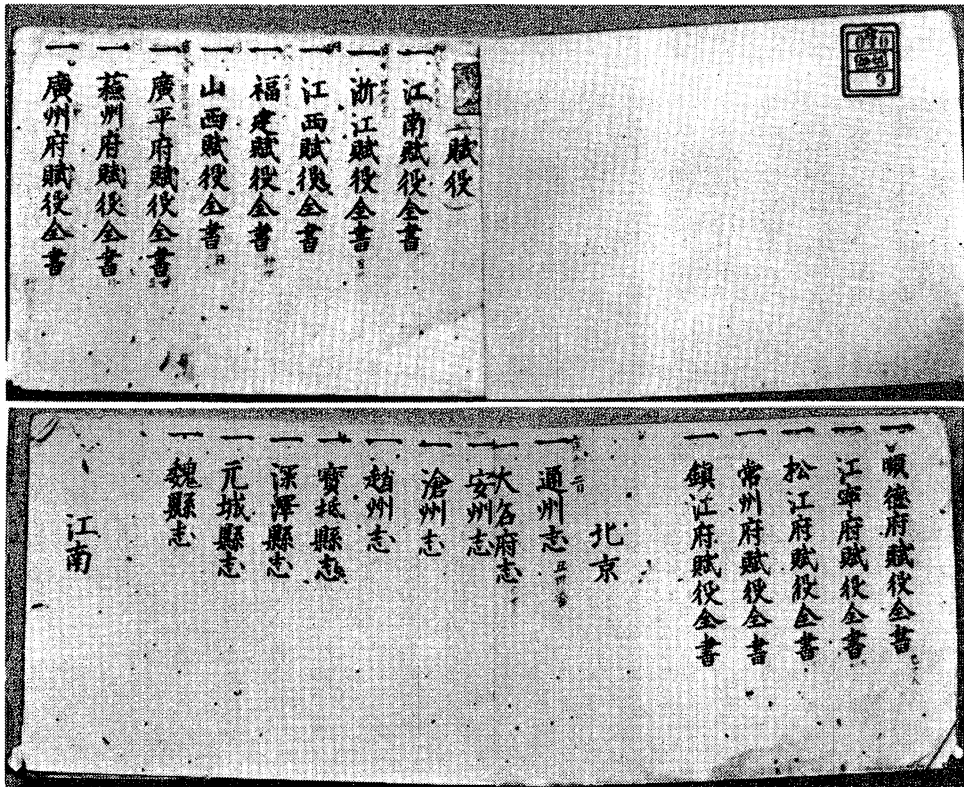 (賦役)
一 江南賦役全書
一 浙江賦役全書
一 江西賦役全書
一 福建賦役全書
一 山西賦役全書
一 廣平府賦役全書
一 蘓州府賦役全書
一 廣州府賦役全書
一 順德府賦役全書
一 江寧府賦役全書
一 松江府賦役全書
一 常州府賦役全書
一 鎮江府賦役全書
北京
一 通州志
一 大名府志
一 安州志
一 滄州志
一 趙州志
一 寶抵縣志
一 深澤縣志
一 元城縣志
一 魏縣志
江南